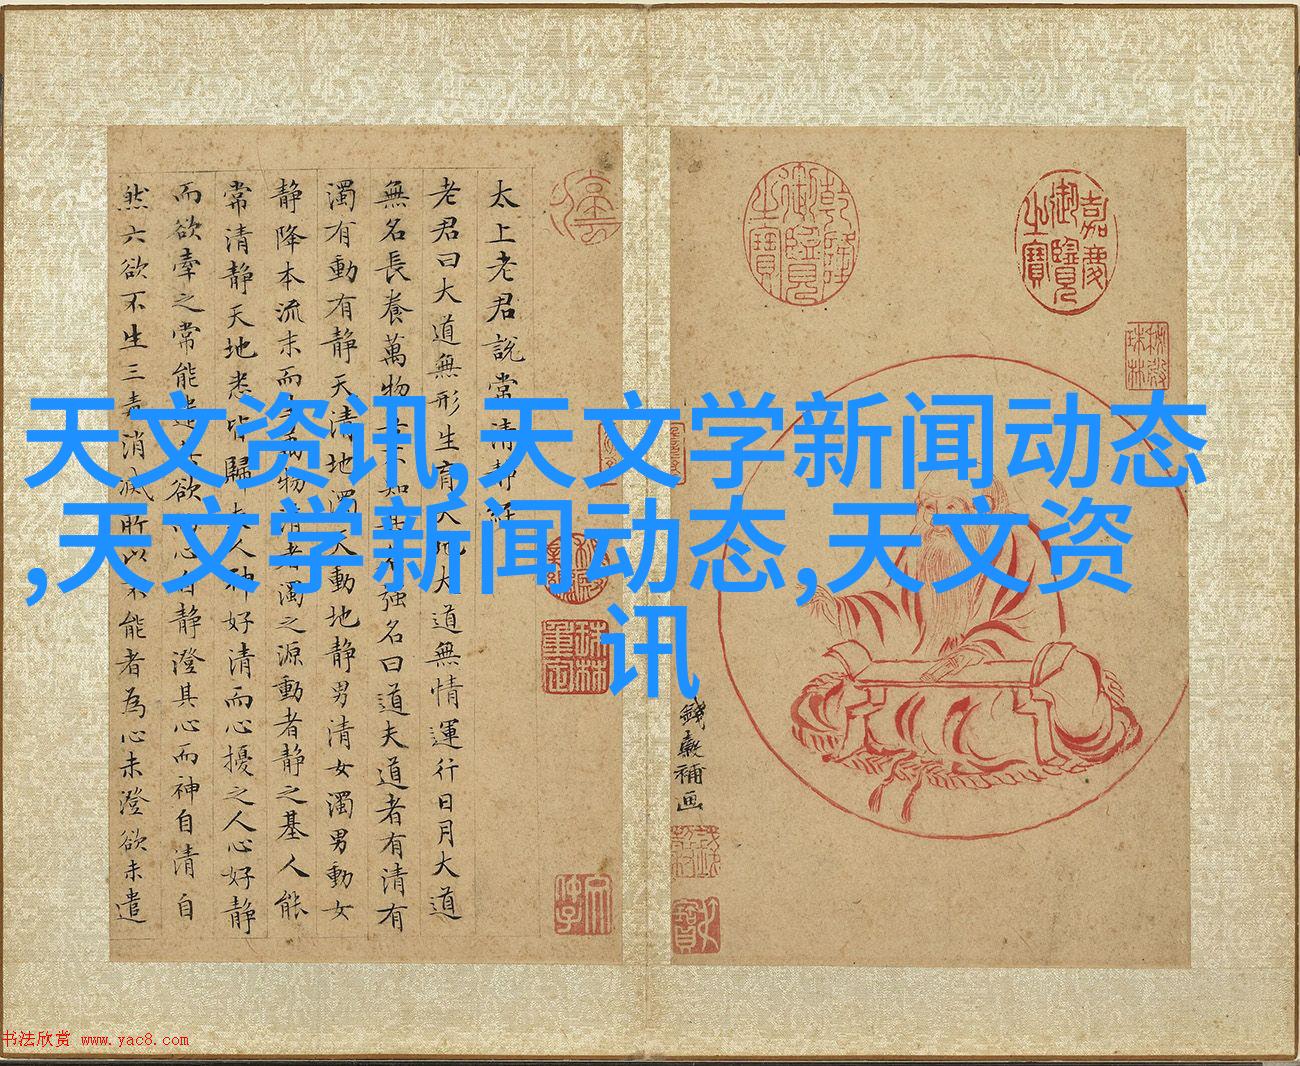 天文资讯,天文学新闻动态
,天文学新闻动态,天文资
讯
嘉慶御覽之寶
乾隆御覽之寶
秘殿珠林
錢穀補画
太上老君説常清静經
老君曰大道無形生育天地大道無情運行日月大道
無名長養萬物吾不知其名强名曰道夫道者有清有
濁有動有静天清地濁天動地静男清女濁男動女
静降本流末而生萬物清者濁之源動者静之基人能
常清静天地悉皆歸夫人神好清而心擾之人心好静
而欲牽之常能遣其欲而心自静澄其心而神自清自
然六欲不生三毒消滅所以不能者為心未澄欲未遣
珠林重定
书法欣赏 www.yac8.com